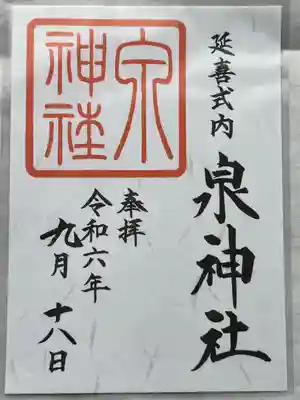 延喜式内
泉神社
泉神社
奉拝
令和六年
九月十八日